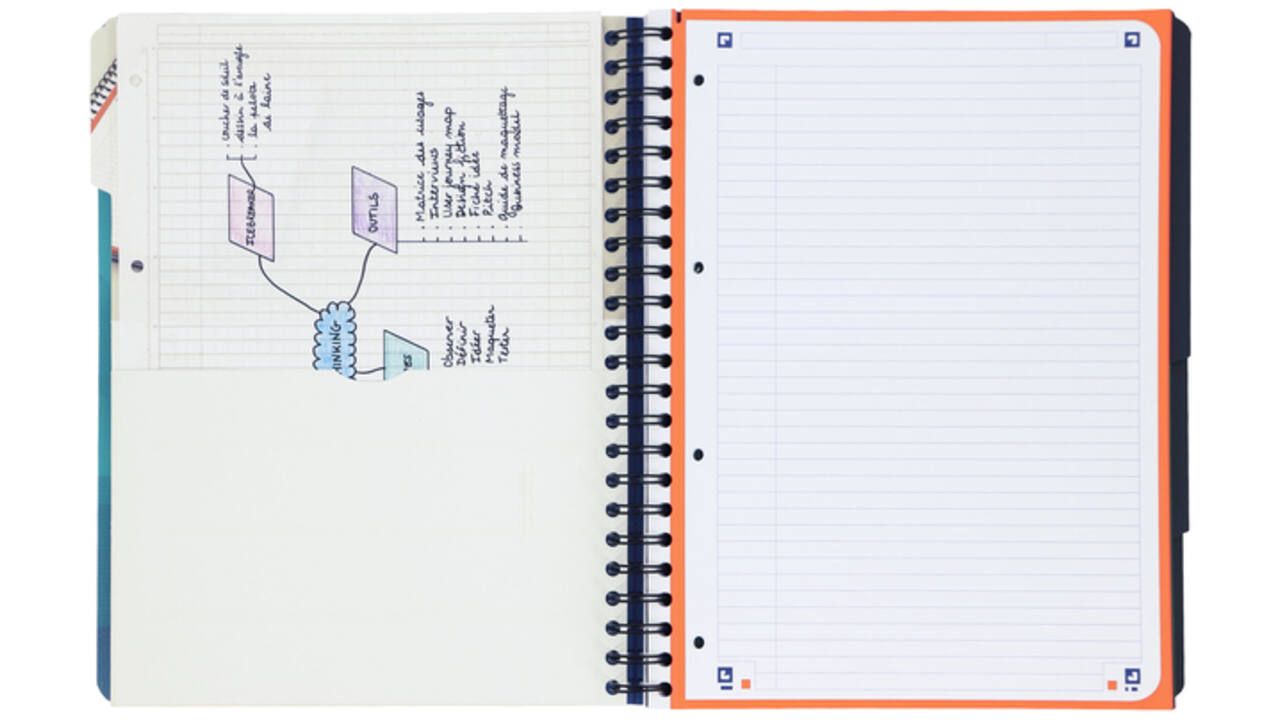 ICEBREAKER
. coucher de soleil
. dessin à l'aveugle
. la pelote
de laine
OUTILS
. Matrice des usages
. Interviews
. User journey map
. Design fiction
. Fiche idée
. Pitch
. Guide de maquettage
. Business model
INKING
ES
Observer
Définir
Idéer
Maqueter
Tester